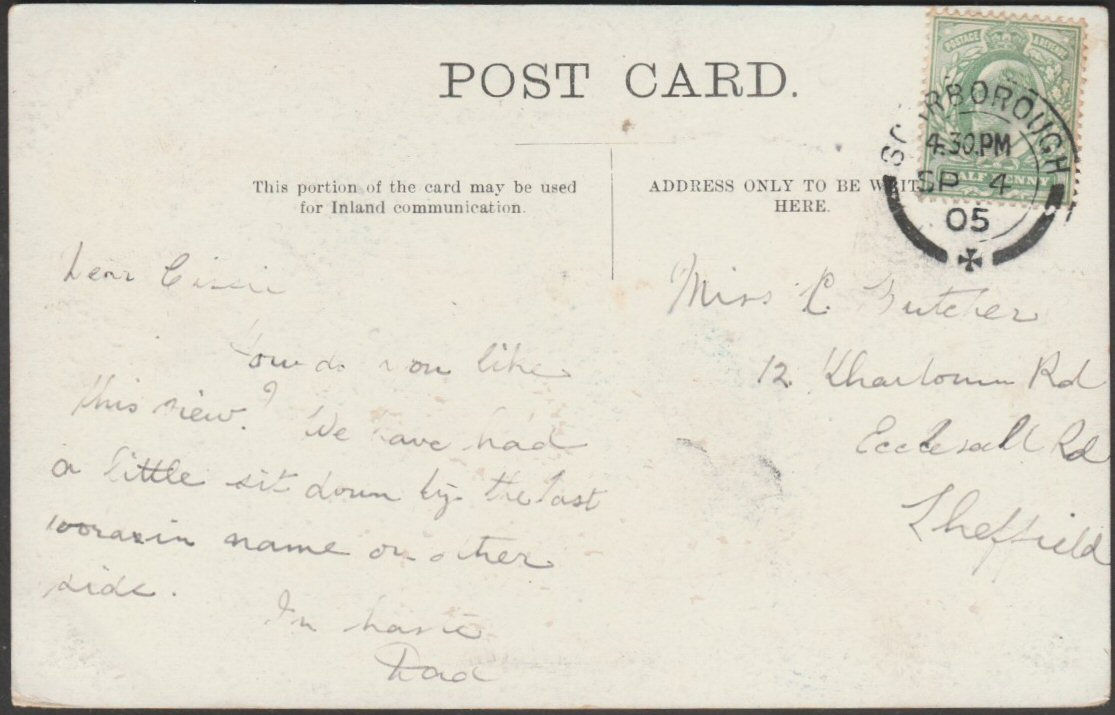 POST CARD.
POSTAGE & REVENUE
HALF PENNY
SCARBOROUGH
4.30.PM
SP 4
05
This portion of the card may be used
for Inland communication.
ADDRESS ONLY TO BE WRIT
HERE.
Dear Cissie
How do you like
this view? We have had
a little sit down by the last
word in name on other
side.
In haste
Dad
Miss C. Butcher
12 Khartoum Rd
Ecclesall Rd
Sheffield